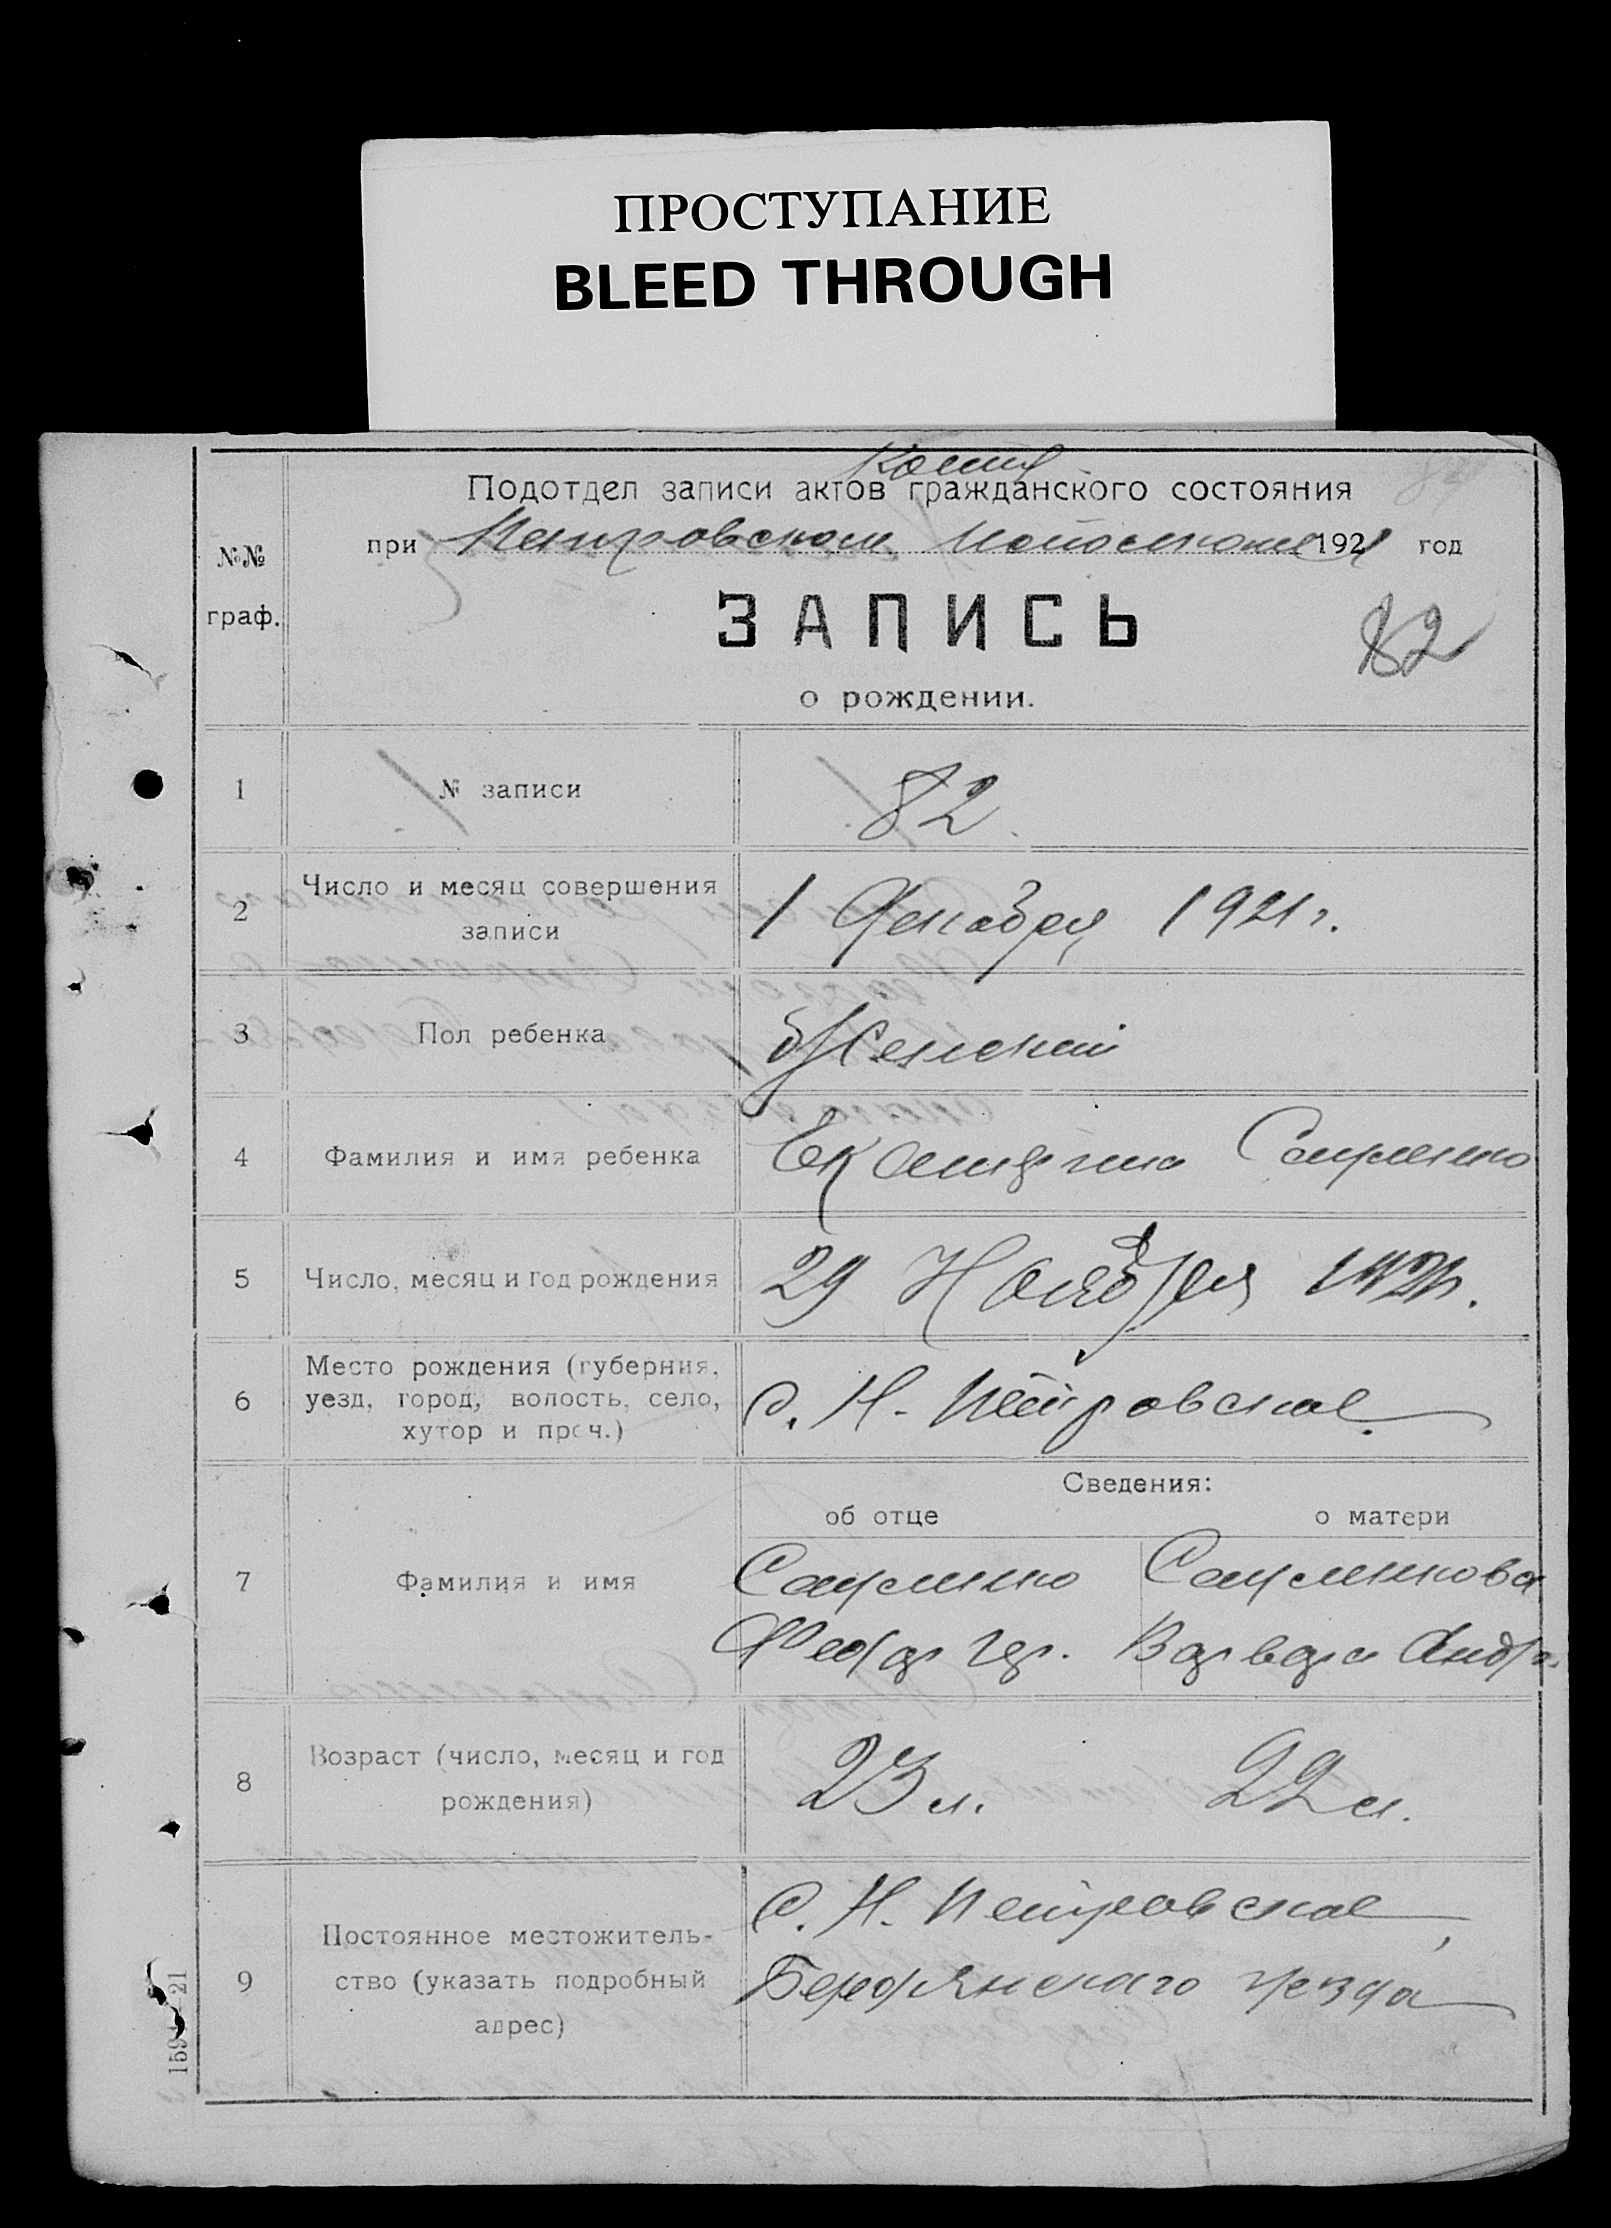 ПРОСТУПАНИЕ
BLEED THROUGH
Копия
Подотдел записи актов гражданского состояния
№№ граф.
при Петровском 1921 год
ЗАПИСЬ
82
о рождении.
1 № записи 82.
2 Число и месяц совершения записи 1 Декабря 1921 г.
3 Пол ребенка Женский
4 Фамилия и имя ребенка Екатерина
5 Число, месяц и год рождения 29 Ноября 1921г.
6 Место рождения (губерния, уезд, город, волость, село, хутор и проч.) с. Н. Петровское
Сведения:
об отце о матери
7 Фамилия и имя
Федор Гр. Варвара Андр.
8 Возраст (число, месяц и год рождения) 23 л. 22 л.
9 Постоянное местожительство (указать подробный адрес) с. Н. Петровское,
Бердянского уезда